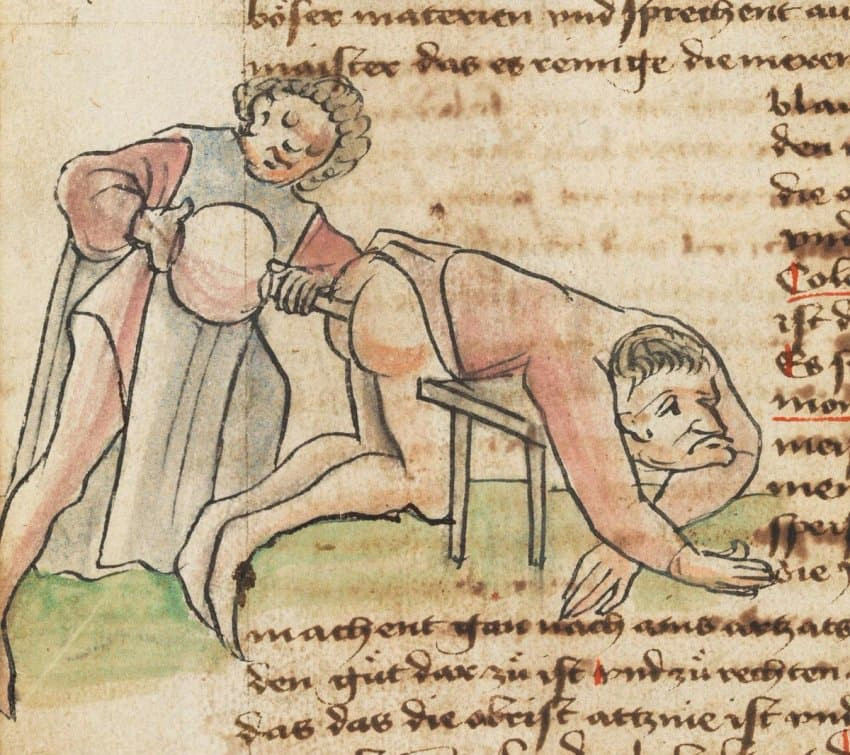 böser materien vnd sprechent au
maister das es renige die meren
blau
den
die
vnd
Colo
ist d
Es s
mon
meis
men
speis
die
machent gan nach ains artzats
den gůt dar zů ist vnd zů rechten
das das die obrist attznie ist vnd